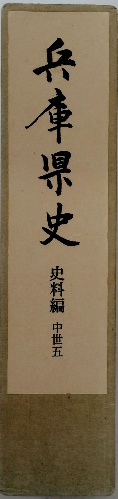 兵庫県史
史料編 中世五